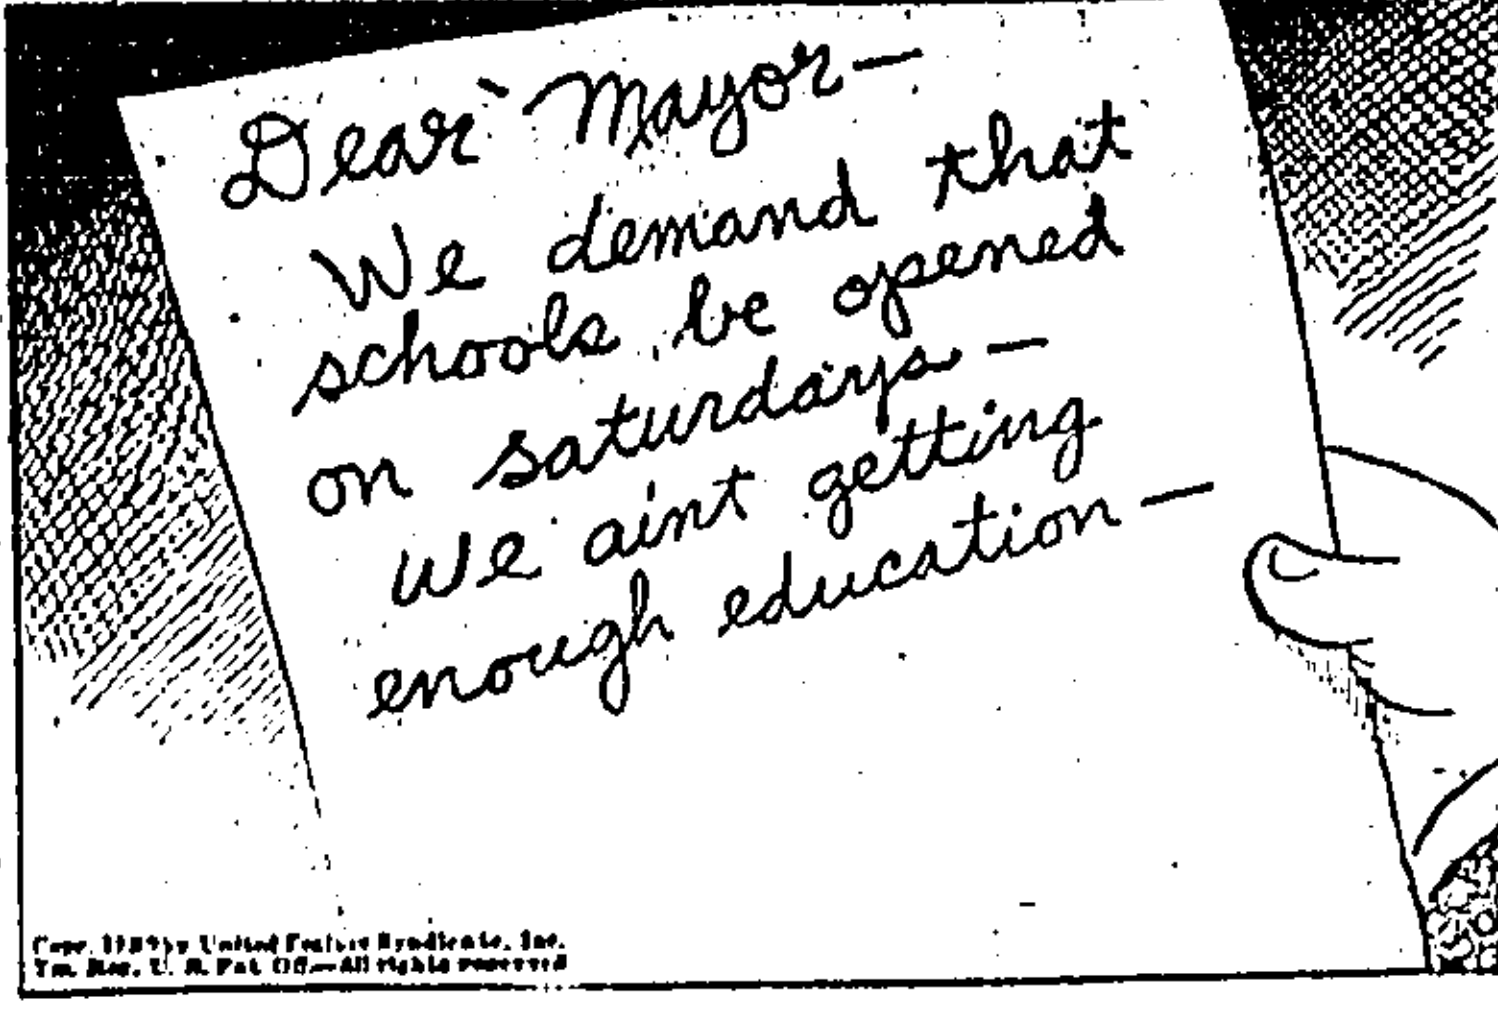 Dear Mayor—
We demand that
schools be opened
on saturdays—
We aint getting
enough education—
by United Feature Syndicate, Inc.
Tm. Reg. U. S. Pat. Off.—All rights reserved